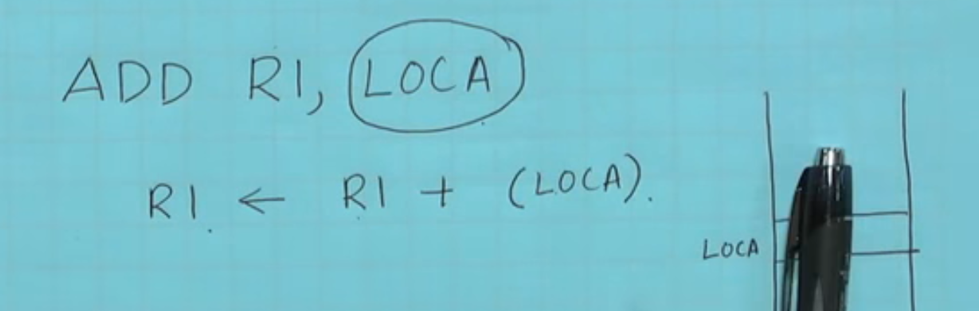 ADD R1, LOCA
R1 ← R1 + (LOCA).
LOCA